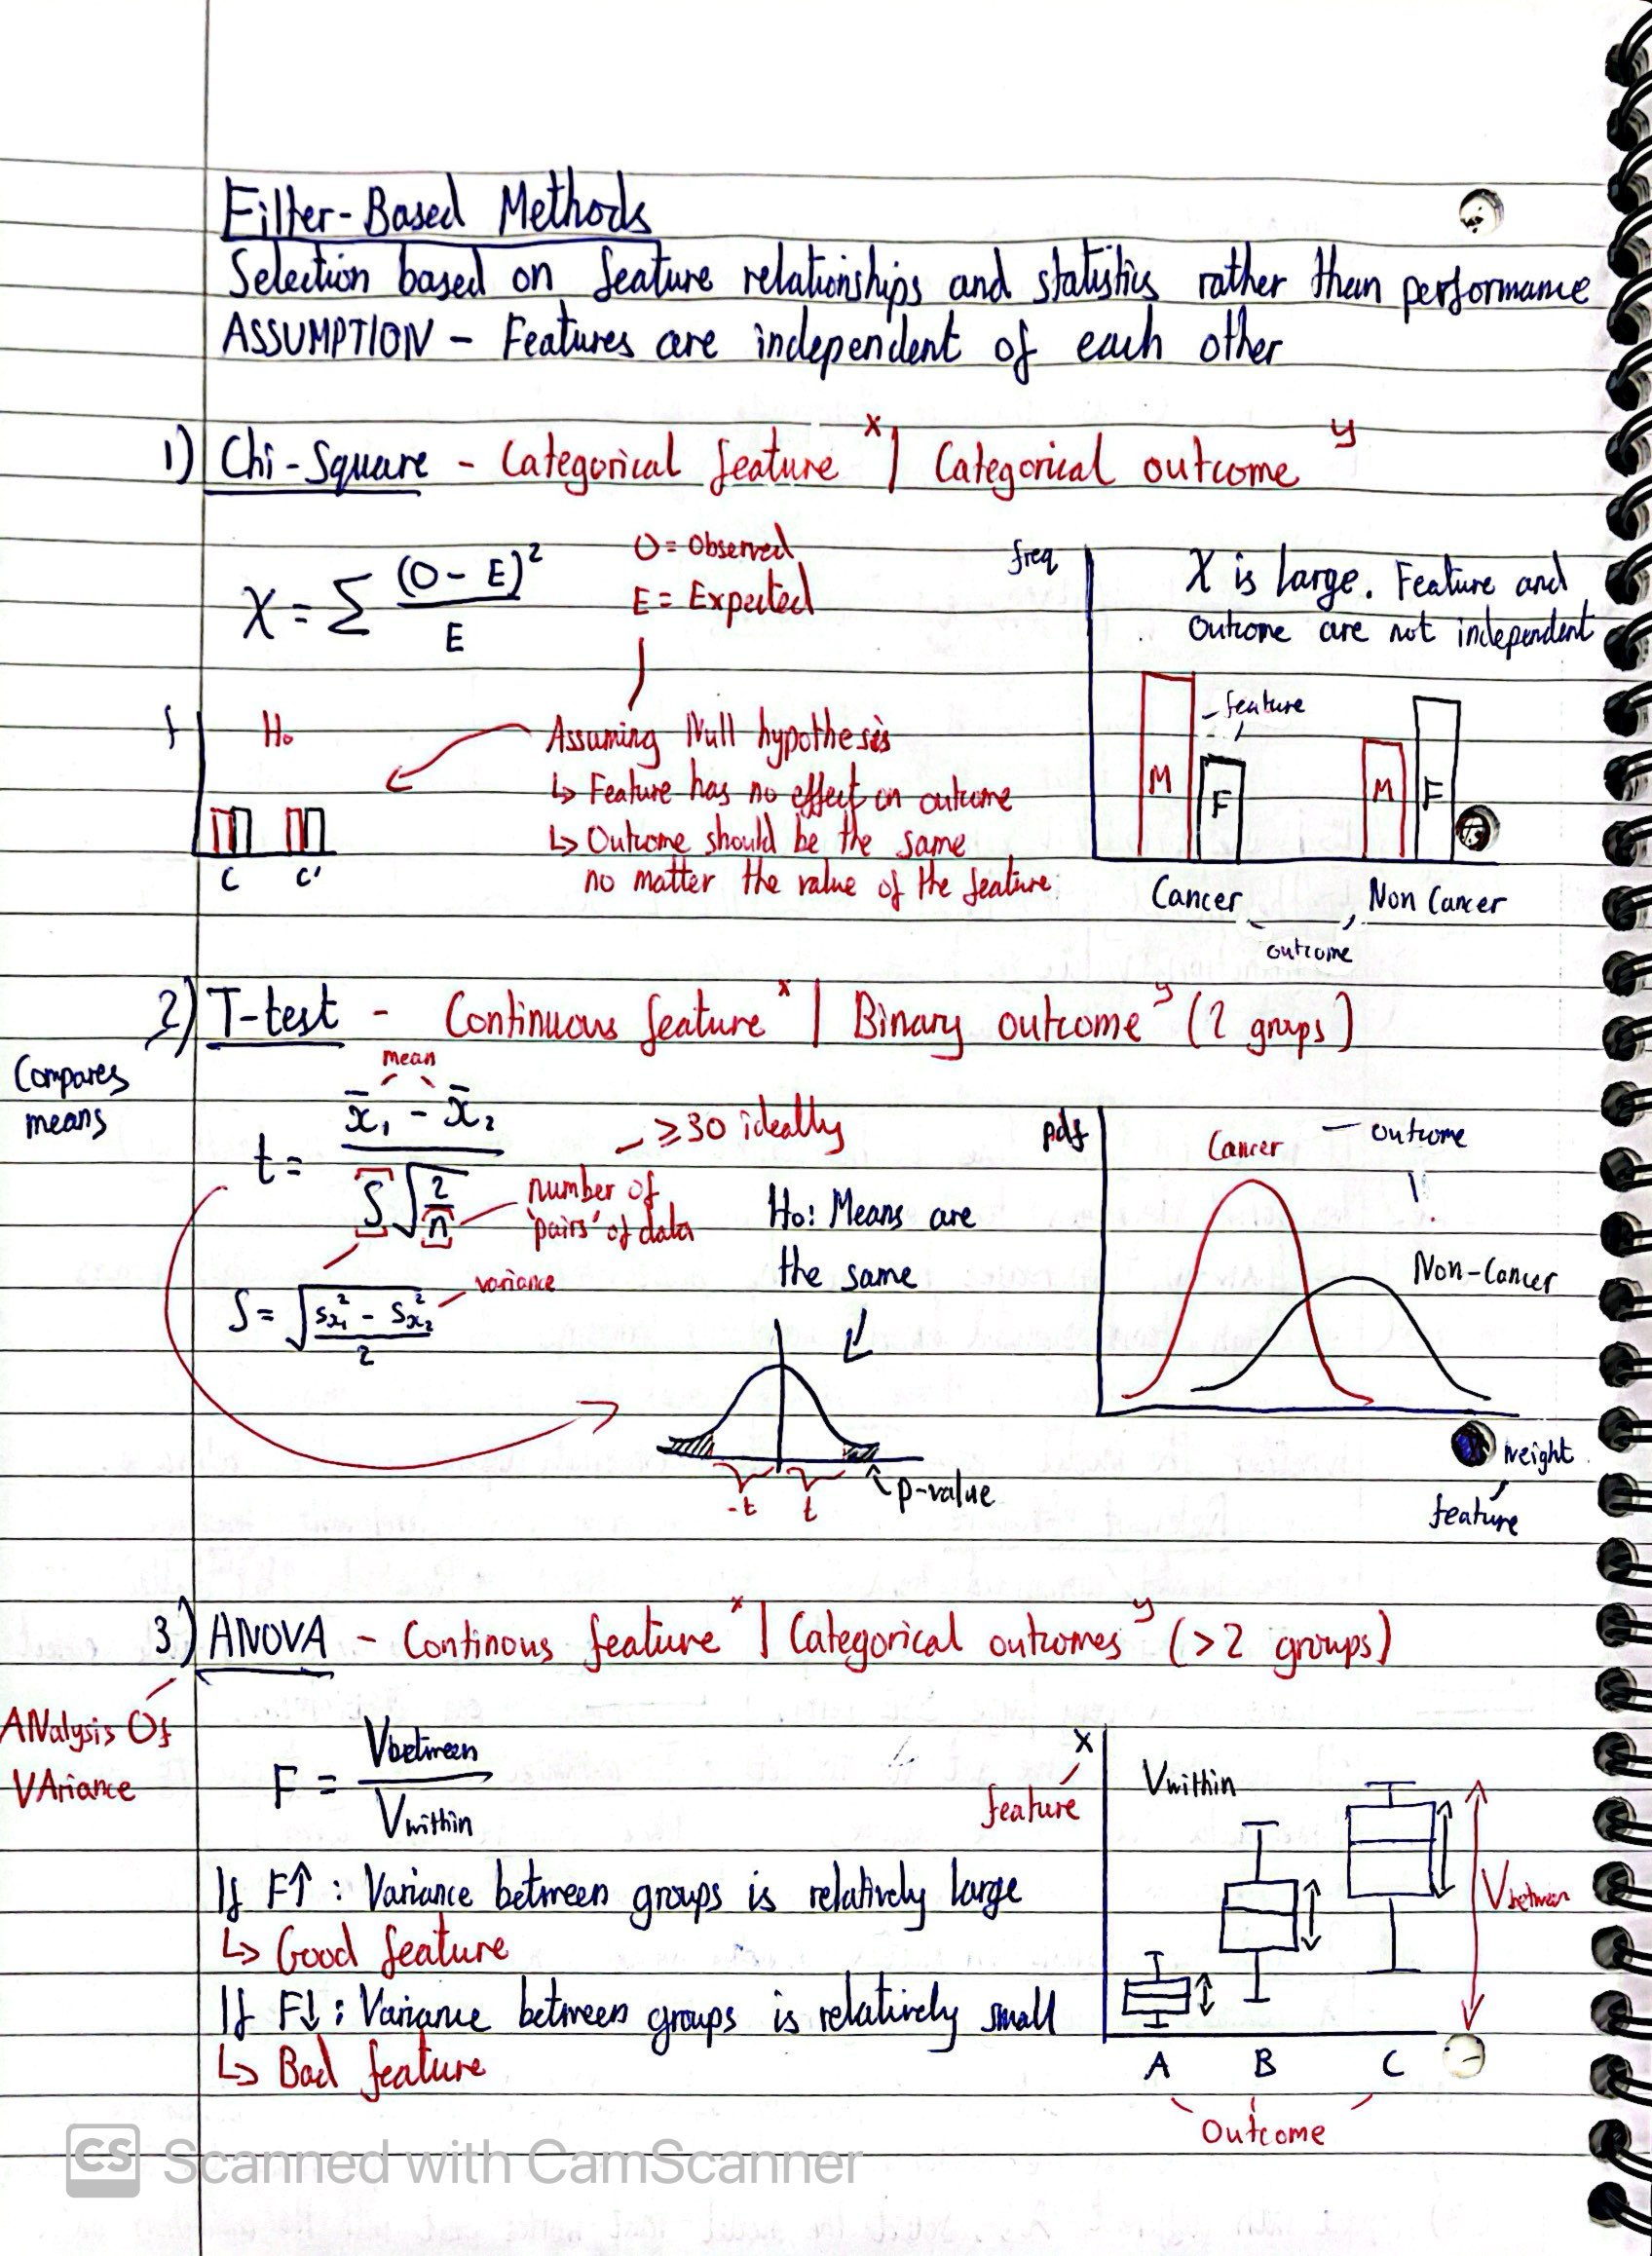 Filter-Based Methods
Selection based on feature relationships and statistics rather than performance
ASSUMPTION - Features are independent of each other
1) Chi-Square - Categorical feature x | Categorical outcome y
χ = Σ (O - E)² / E
O = Observed
E = Expected
Assuming Null hypothesis
↳ Feature has no effect on outcome
↳ Outcome should be the same
no matter the value of the feature
f
H₀
C C'
freq
χ is large. Feature and
outcome are not independent
feature
M F M F
Cancer Non Cancer
outcome
2) T-test - Continuous feature x | Binary outcome y (2 groups)
Compares
means
mean
t = x̄₁ - x̄₂ / S√(2/n)
≥30 ideally
number of
'pairs' of data
S = √((s²x₁ - s²x₂)/2)
variance
H₀: Means are
the same
-t t
p-value
pdf
Cancer
outcome
Non-Cancer
weight
feature
3) ANOVA - Continous feature x | Categorical outcomes y (>2 groups)
ANalysis Of
VAriance
F = Vbetween / Vwithin
If F↑ : Variance between groups is relatively large
↳ Good feature
If F↓ : Variance between groups is relatively small
↳ Bad feature
x
feature
Vwithin
Vbetween
A B C
Outcome
CS Scanned with CamScanner